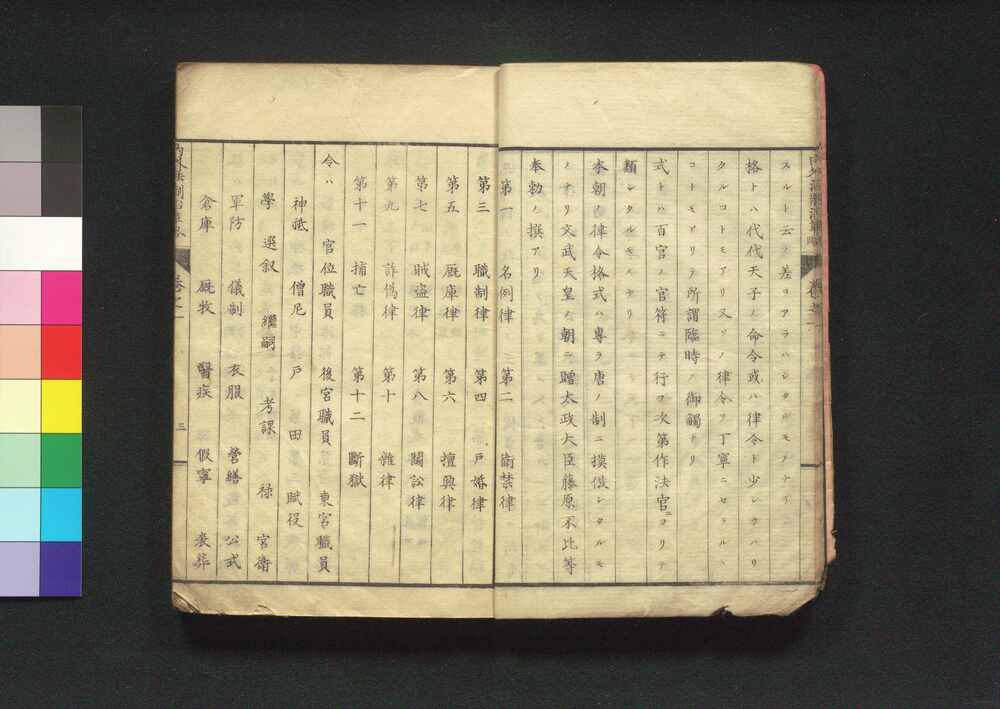 スルト云フ差ヲアラハシタルモノナリ
格トハ代代天子ノ命令或ハ律令ト少シカハリ
タルコトモアリ又ソノ律令ヲ丁寧ニセラルヽ
コトモアリテ所謂臨時ノ御觸ナリ
式トハ百官ノ官符ニテ行フ次第作法官ニヨリテ
類シタルモノナリ
本朝ノ律令格式ハ専ラ唐ノ制ニ摸傚シタルモ
ノナリ文武天皇ノ朝ニ贈太政大臣藤原不比等
奉勅ノ撰アリ
第一 名例律 第二 衛禁律
第三 職制律 第四 戸婚律
第五 厩庫律 第六 擅興律
第七 賊盗律 第八 闘訟律
第九 詐偽律 第十 雜律
第十一 捕亡 第十二 斷獄
令ハ 官位職員 後宮職員 東宮職員
神祇 僧尼 戸 田 賦役
學 選叙 繼嗣 考課 禄 宮衛
軍防 儀制 衣服 營繕 公式
倉庫 厩牧 醫疾 假寧 喪葬
三